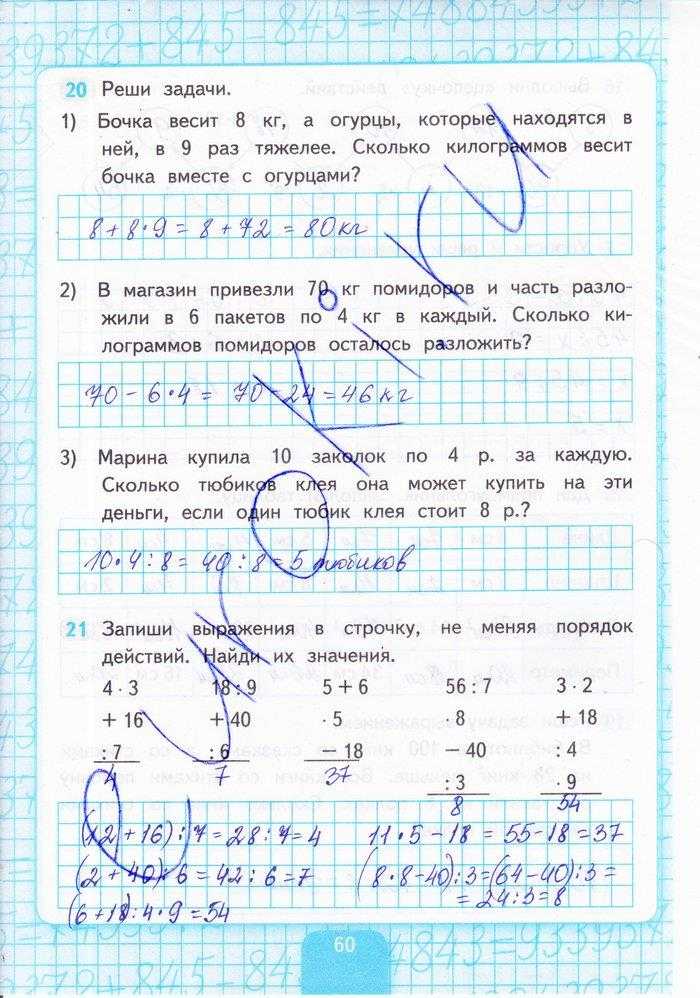 20 Реши задачи.
1) Бочка весит 8 кг, а огурцы, которые находятся в
ней, в 9 раз тяжелее. Сколько килограммов весит
бочка вместе с огурцами?
8 + 8 · 9 = 8 + 72 = 80 кг
2) В магазин привезли 70 кг помидоров и часть разло-
жили в 6 пакетов по 4 кг в каждый. Сколько ки-
лограммов помидоров осталось разложить?
70 - 6 · 4 = 70 - 24 = 46 кг
3) Марина купила 10 заколок по 4 р. за каждую.
Сколько тюбиков клея она может купить на эти
деньги, если один тюбик клея стоит 8 р.?
10 · 4 : 8 = 40 : 8 = 5 тюбиков
21 Запиши выражения в строчку, не меняя порядок
действий. Найди их значения.
4 · 3 18 : 9 5 + 6 56 : 7 3 · 2
+ 16 + 40 · 5 · 8 + 18
: 7 : 6 - 18 - 40 : 4
4 7 37 : 3 · 9
8 54
(12 + 16) : 7 = 28 : 7 = 4 11 · 5 - 18 = 55 - 18 = 37
(2 + 40) : 6 = 42 : 6 = 7 (8 · 8 - 40) : 3 = (64 - 40) : 3 =
= 24 : 3 = 8
(6 + 18) : 4 · 9 = 54
60